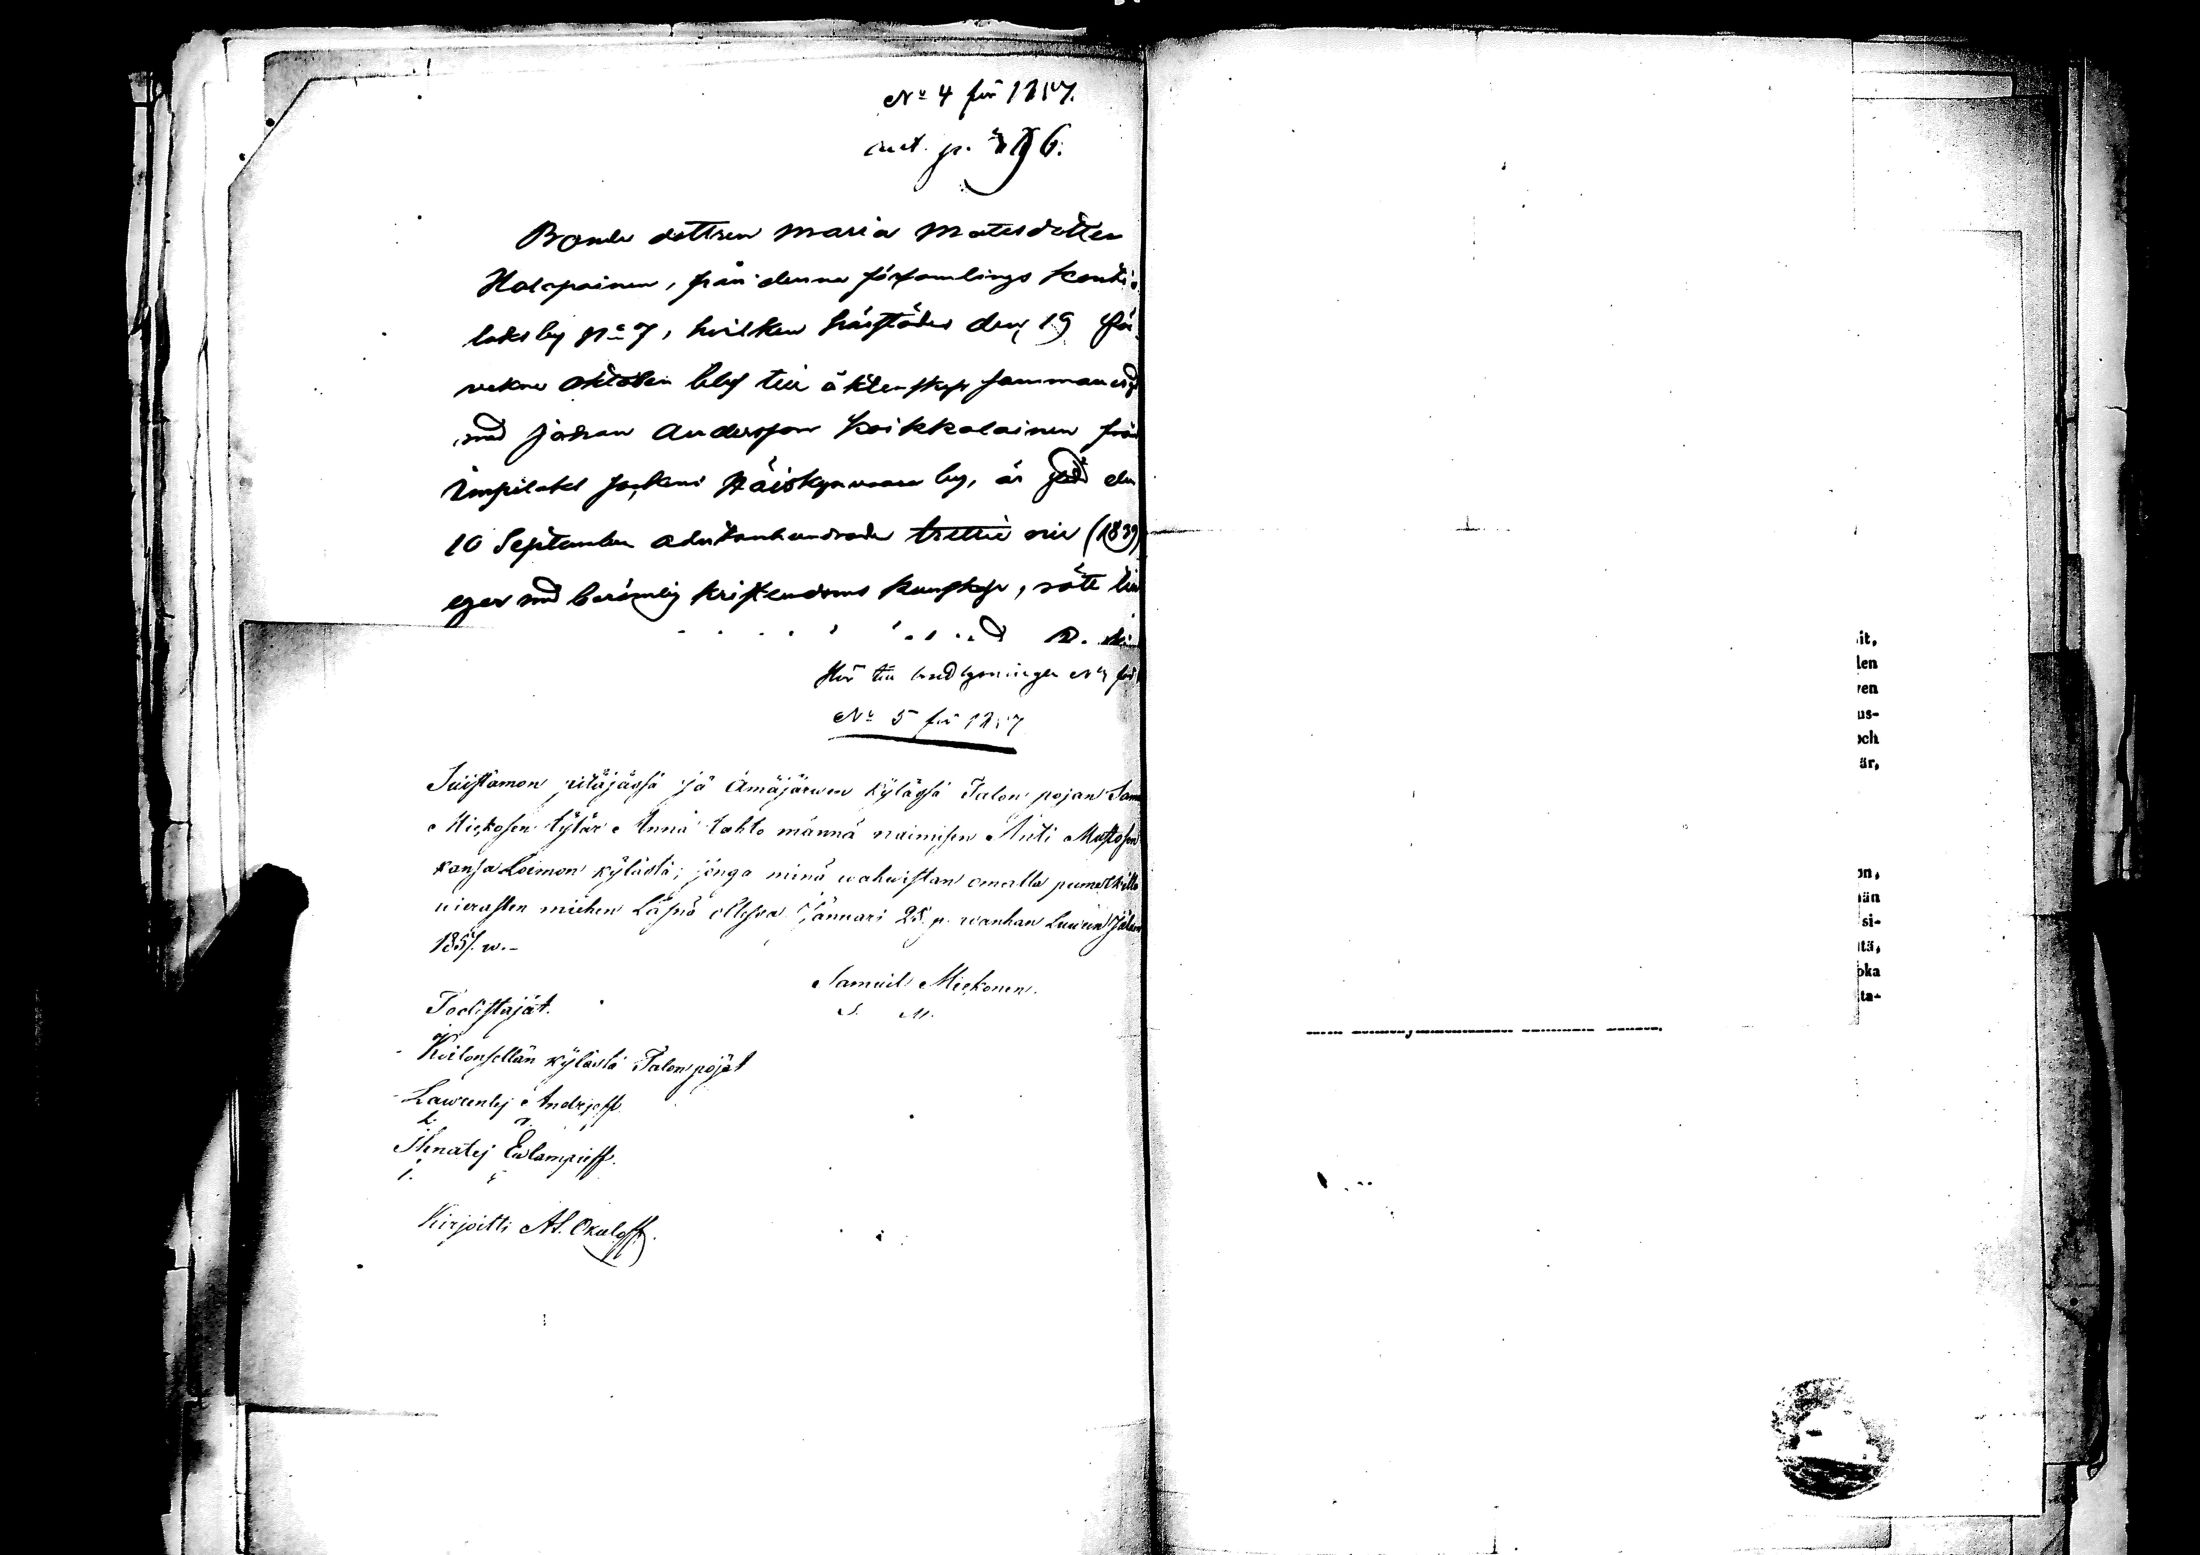 No 4 för 1857.
ant. p. 396.
Bonde dottren Maria Matsdotter
Holopainen, från denne församlings Konti-
laks by No 7, hvilken härstädes den 19 sist-
vekne Oktober blef till äktenskap sammanvigd
med Johan Andersson Koikkalainen från
Impilaks sockens Häiskynvaara by, är född den
10 September adertonhundrade trettie nie (1839)
eger med berömlig kristendoms kunskap, rätt till
Hör till lysningen No 4 för
No 5 för 1857
Suistamon pitäjässä ja Ämäjärwen kylässä Talon pojan Sam
Mickosen tytär Anna tahto männä naimisen Anti Mustosen
kansa Loimon kylästä; jonga minä wahwistan omalla puumerkillä
vierasten miehen Läsnä ollessa Januari 25 p. wanhan Luwun jälen
1857. w.-
Samuil Mickonen.
S. M.
Todistajat.
Koitonsellän kylästä Talon pojat
Lawrentej Andrejeff.
L. A.
Ihnatej Ewlampieff.
I. E
Kirjoitti Al. Okuloff.
it,
len
ven
us-
och
är,
on,
hän
si-
itä,
oka
ta-